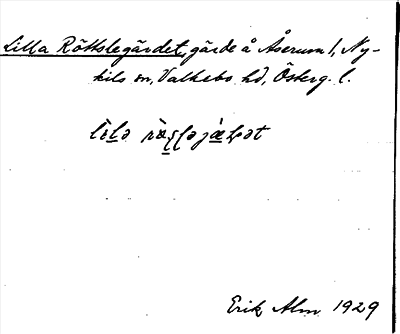 Lilla Röttslegärdet, gärde å Åserum 1, Ny-
kils sn, Valkebo hd, Österg. l.
Erik Alm 1929